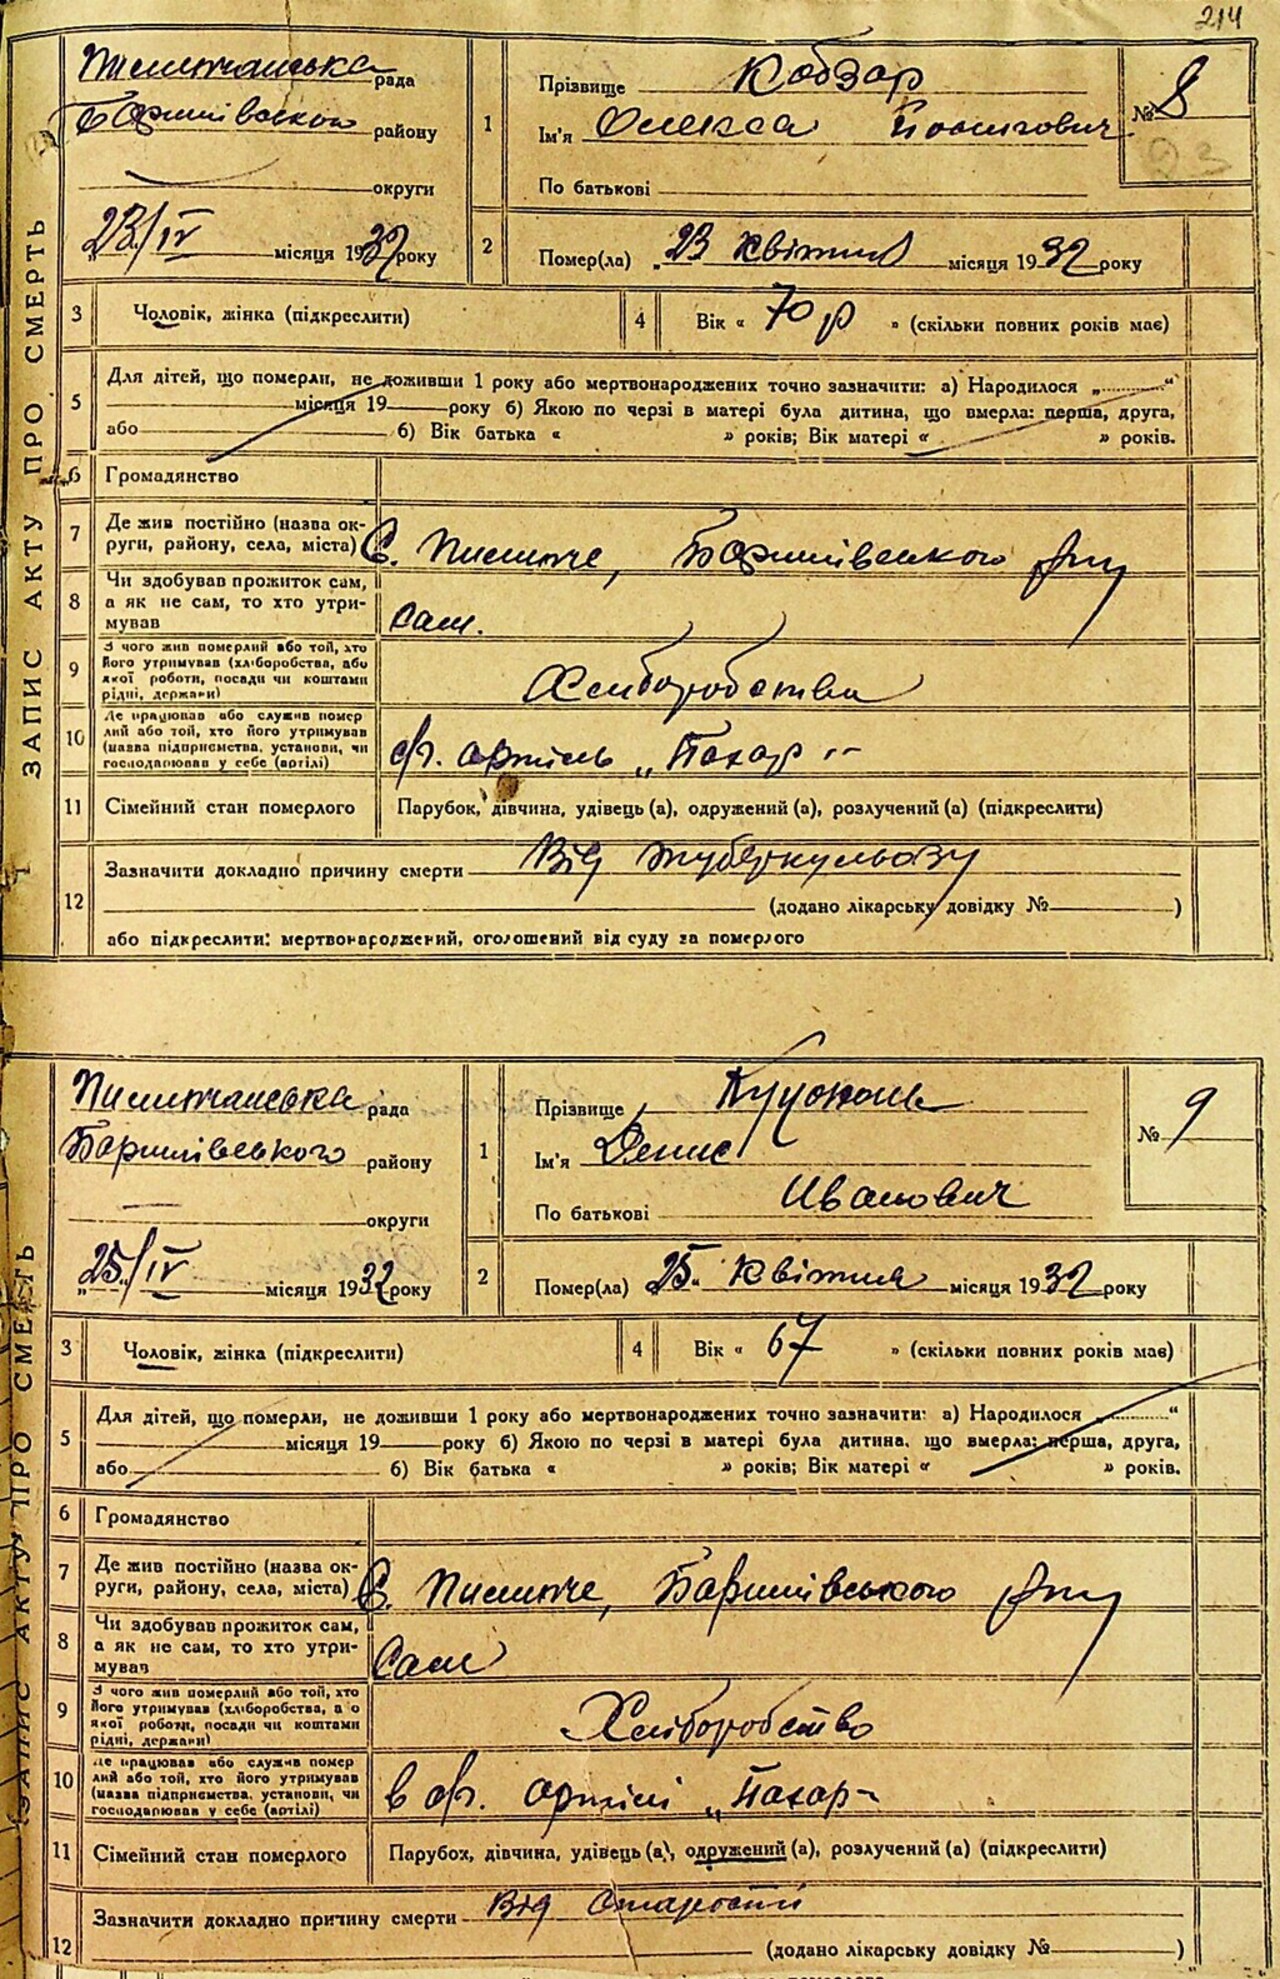 214
ЗАПИС АКТУ ПРО СМЕРТЬ
Пилипчанська рада
Баришівського району
округи
„23/IV місяця 1932 року
1
Прізвище Кобзар
Ім'я Олекса
По батькові
№ 8
93
2
Помер(ла) „23 квітня місяця 1932 року
3
Чоловік, жінка (підкреслити)
4
Вік « 70 р » (скільки повних років має)
5
Для дітей, що померли, не доживши 1 року або мертвонароджених точно зазначити: а) Народилося „..........“
місяця 19 року б) Якою по черзі в матері була дитина, що вмерла: перша, друга,
або б) Вік батька « » років; Вік матері « » років.
6
Громадянство
7
Де жив постійно (назва ок-
руги, району, села, міста)
С. Пилипче, Баришівського р-ну
8
Чи здобував прожиток сам,
а як не сам, то хто утри-
мував
сам.
9
З чого жив померлий або той, хто
його утримував (хліборобства, або
якої роботи, посади чи коштами
рідні, держави)
Хліборобства
10
Де працював або служив помер
лий або той, хто його утримував
(назва підприємства, установи, чи
господарював у себе (артілі)
с/г. артіль „Пахар"
11
Сімейний стан померлого
Парубок, дівчина, удівець (а), одружений (а), розлучений (а) (підкреслити)
12
Зазначити докладно причину смерти Від туберкульозу
(додано лікарську довідку № )
або підкреслити: мертвонароджений, оголошений від суду за померлого
ЗАПИС АКТУ ПРО СМЕРТЬ
Пилипчанська рада
Баришівського району
округи
„25/IV місяця 1932 року
1
Прізвище
Ім'я Денис
По батькові Иванович
№ 9
2
Помер(ла) 25 „ квітня місяця 1932 року
3
Чоловік, жінка (підкреслити)
4
Вік « 67 » (скільки повних років має)
5
Для дітей, що померли, не доживши 1 року або мертвонароджених точно зазначити: а) Народилося „..........“
місяця 19 року б) Якою по черзі в матері була дитина, що вмерла: перша, друга,
або б) Вік батька « » років; Вік матері « » років.
6
Громадянство
7
Де жив постійно (назва ок-
руги, району, села, міста)
С. Пилипче, Баришівського р-ну
8
Чи здобував прожиток сам,
а як не сам, то хто утри-
мував
Сам
9
З чого жив померлий або той, хто
його утримував (хліборобства, або
якої роботи, посади чи коштами
рідні, держави)
Хліборобство
10
Де працював або служив помер
лий або той, хто його утримував
(назва підприємства, установи, чи
господарював у себе (артілі)
в с/г. артілі „Пахар"
11
Сімейний стан померлого
Парубок, дівчина, удівець (а), одружений (а), розлучений (а) (підкреслити)
12
Зазначити докладно причину смерти Від старости
(додано лікарську довідку № )